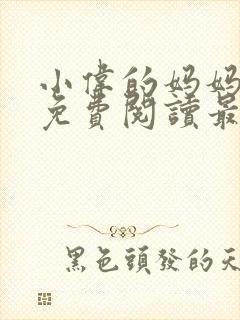 小偉的妈妈
免費閱讀最
黑色頭發的天